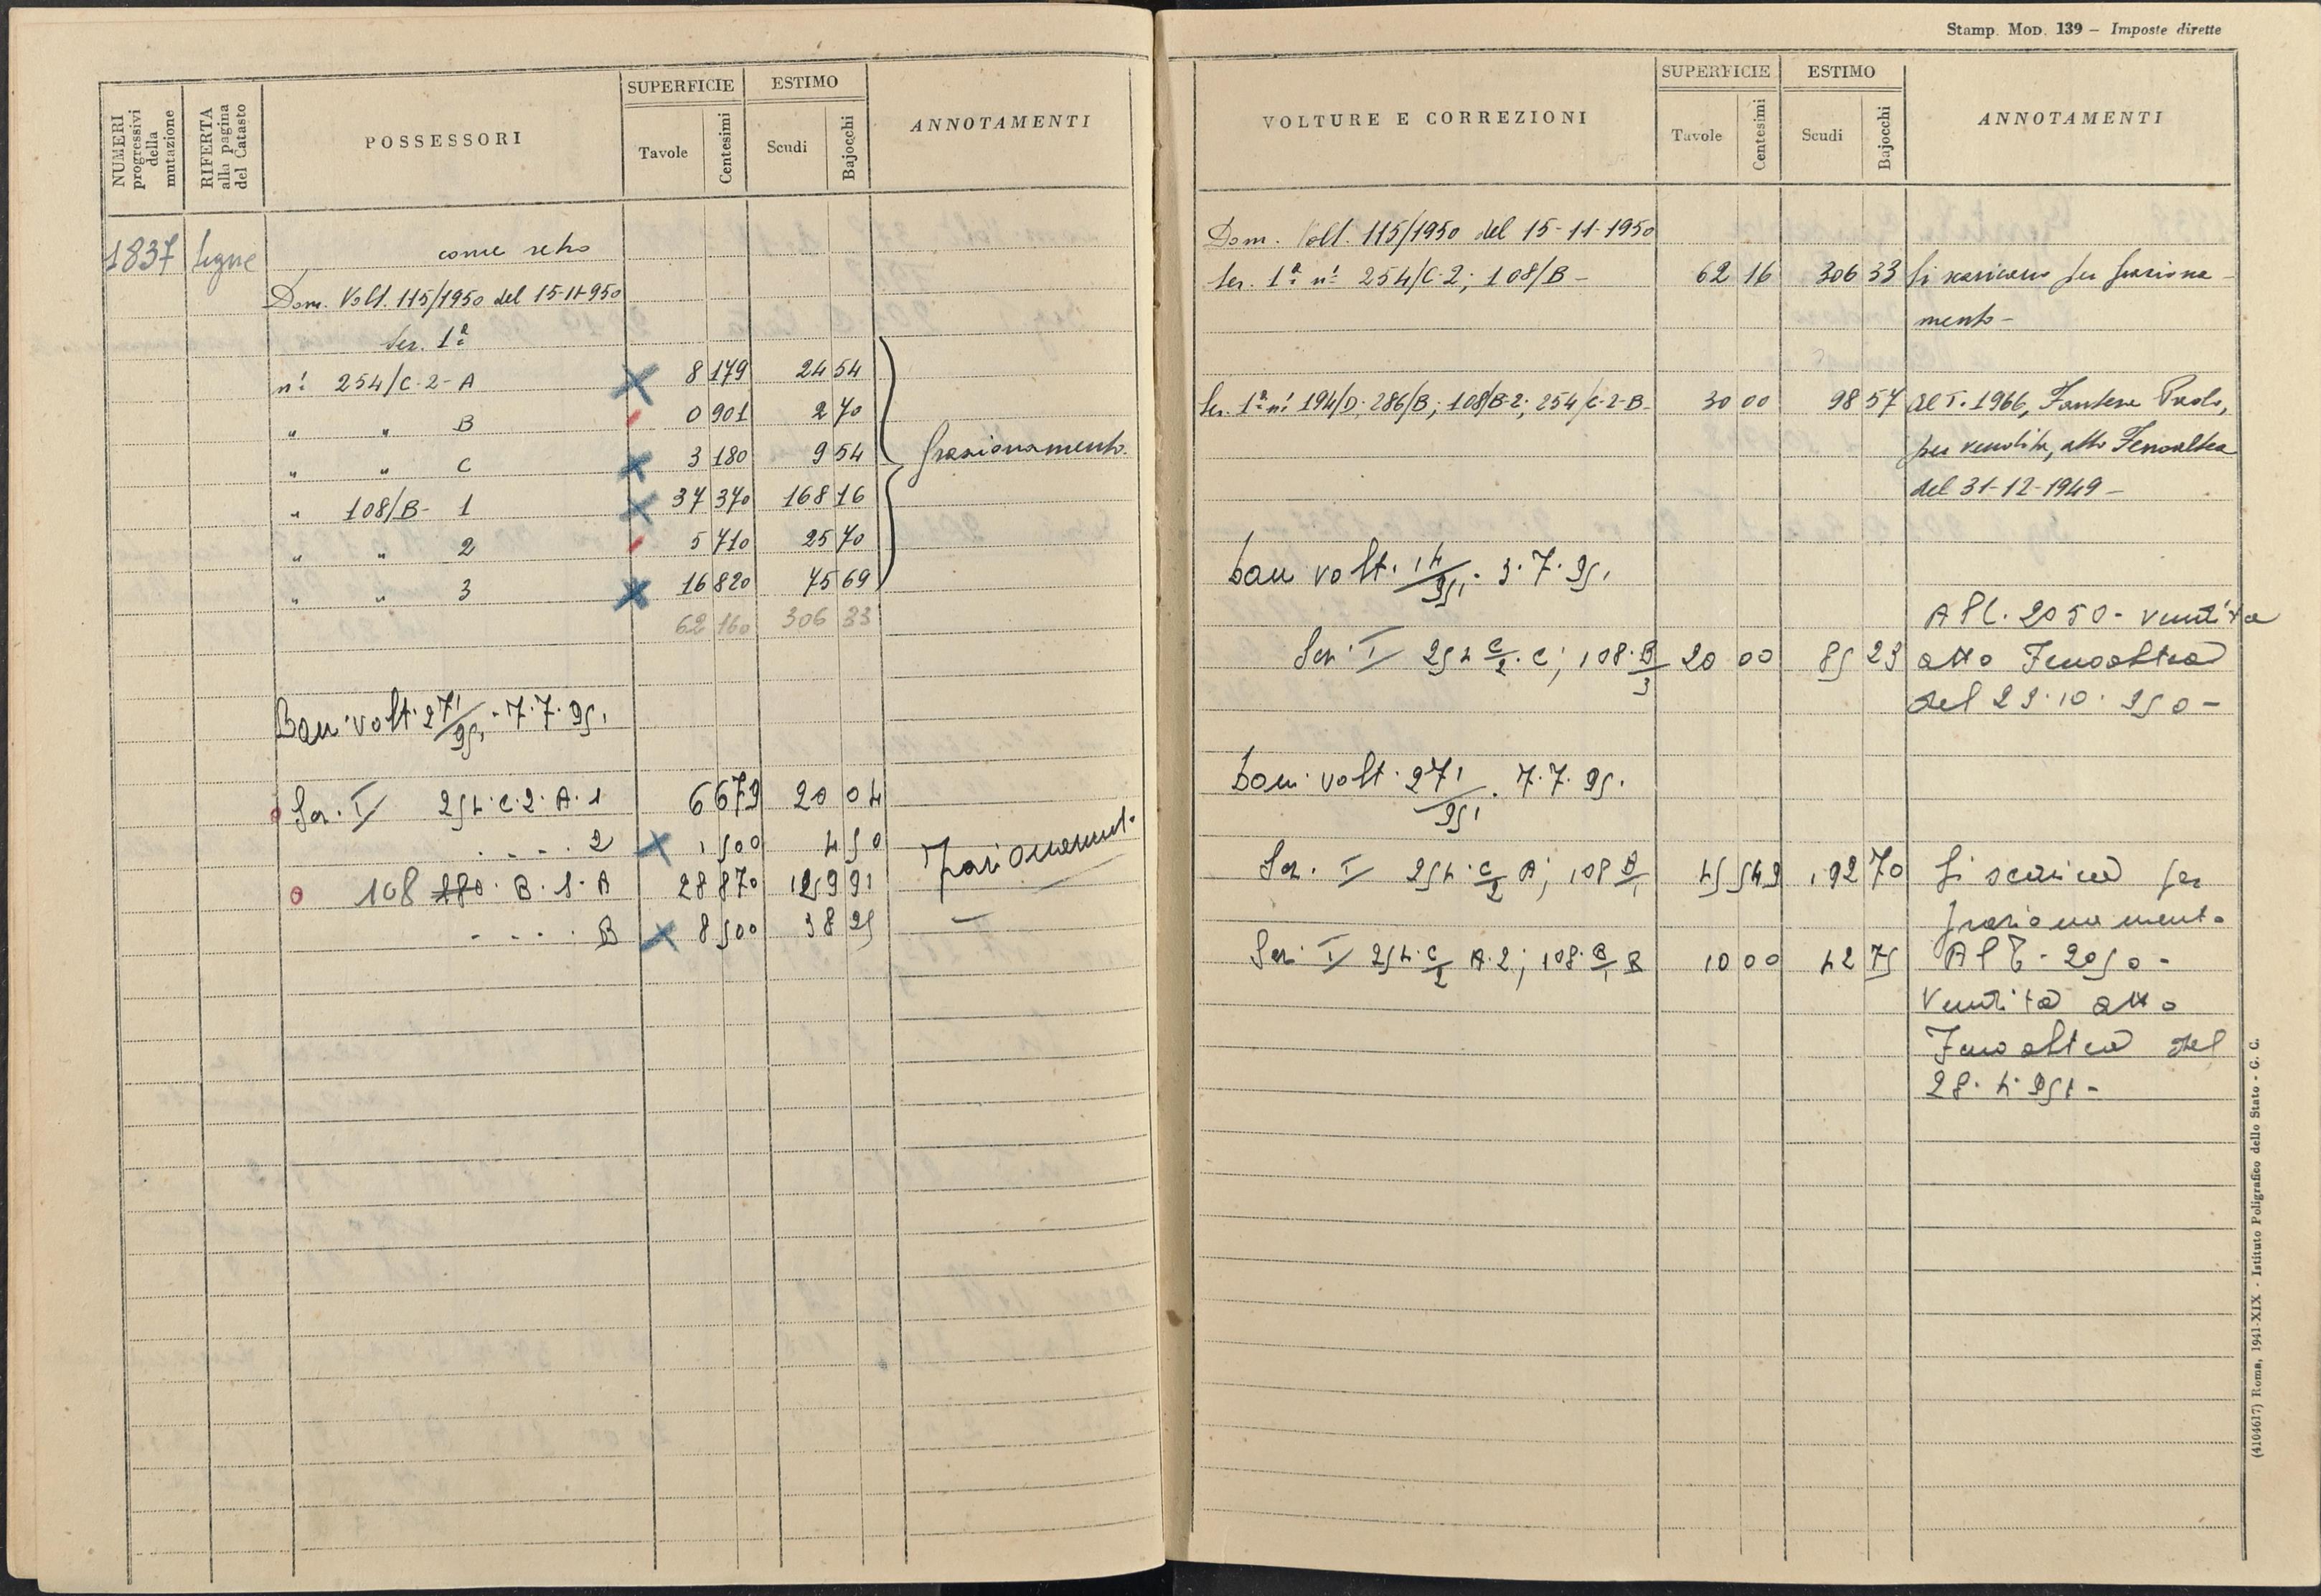 NUMERI progressivi della mutazione
RIFERTA alla pagina del Catasto
POSSESSORI
SUPERFICIE
Tavole
Centesimi
ESTIMO
Scudi
Bajocchi
ANNOTAMENTI
1837 segue come retro
Dom. Volt. 115/1950 del 15-11-950
Ser. 1ª
n.i 254/C-2-A 8 179 24 54
" " B 0 901 2 70
" " C 3 180 9 54
frazionamento
" 108/B- 1 37 370 168 16
" " 2 5 710 25 70
" " 3 16 820 75 69
62 160 306 33
Dom. volt. 271/951. 7.7.951
Sez. I 254.C.2.A.1 6 679 20 04
. . . . 2 1 500 4 50
frazionament.
108 B.1.A 28 870 129 91
- . . . B 8 500 38 25
Stamp. MOD. 139 – Imposte dirette
VOLTURE E CORREZIONI
SUPERFICIE
Tavole
Centesimi
ESTIMO
Scudi
Bajocchi
ANNOTAMENTI
Dom. Volt. 115/1950 del 15-11-1950
Ser. 1ª n.i 254/C-2; 108/B - 62 16 306 33 Si scaricano per fraziona-
mento -
Ser. 1ª n.i 194/D; 286/B; 108/B-2; 254/C-2-B- 30 00 98 57 Al T. 1966, Paolo,
per vendita, atto Fenoaltea
del 31-12-1949 -
Dom volt. 14/951. 3.7.951
Al C. 2050 - vendita
Sez. I 254 C/2. C; 108. B/3 20 00 85 23 atto Fenoaltea
del 29.10.950 -
Dom. volt. 271/951. 7.7.951
Sez. I 254. C/2 A; 108 B/1 45 549 192 70 Si scarica per
frazionamento
Sez. I 254. C/2 A.2; 108. B/1 B 10 00 42 75 Al C. 2050 -
Vendita atto
Fenoaltea del
28.4.951 -
(4104617) Roma, 1941-XIX - Istituto Poligrafico dello Stato - G. C.